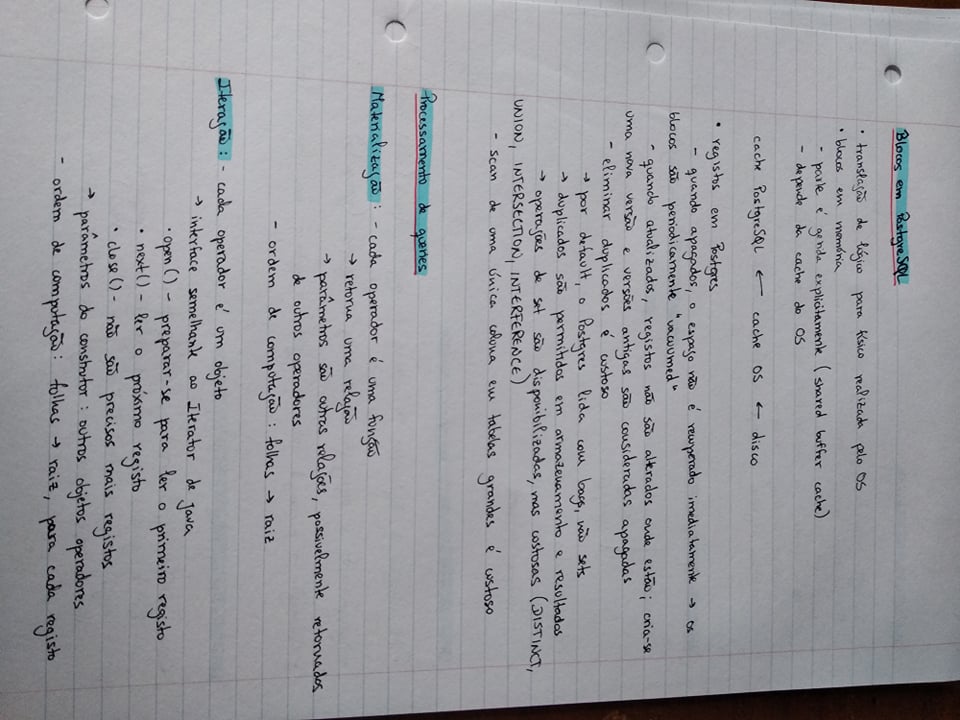 Blocos em PostgreSQL
• translação de lógico para físico realizada pelo OS
• blocos em memória
- parte é gerida explicitamente (shared buffer cache)
- depende da cache do OS
cache PostgreSQL ← cache OS ← disco
• registos em Postgres
- quando apagados, o espaço não é recuperado imediatamente → os
blocos são periodicamente "vacuumed"
- quando atualizados, registos não são alterados onde estão; cria-se
uma nova versão e versões antigas são consideradas apagadas
- eliminar duplicados é custoso
→ por default, o Postgres lida com bags, não sets
→ duplicados são permitidos em armazenamento e resultados
→ operações de set são disponibilizadas, mas custosas (DISTINCT,
UNION, INTERSECTION, INTERFERENCE)
- scan de uma única coluna em tabelas grandes é custoso
Processamento de queries
Materialização: - cada operador é uma função
→ retorna uma relação
→ parâmetros são outras relações, possivelmente retornados
de outros operadores
- ordem de computação: folhas → raiz
Iteração: - cada operador é um objeto
→ interface semelhante ao Iterator de java
• open() - preparar-se para ler o primeiro registo
• next() - ler o próximo registo
• close() - não são precisos mais registos
→ parâmetros do construtor: outros objetos operadores
- ordem de computação: folhas → raiz, para cada registo